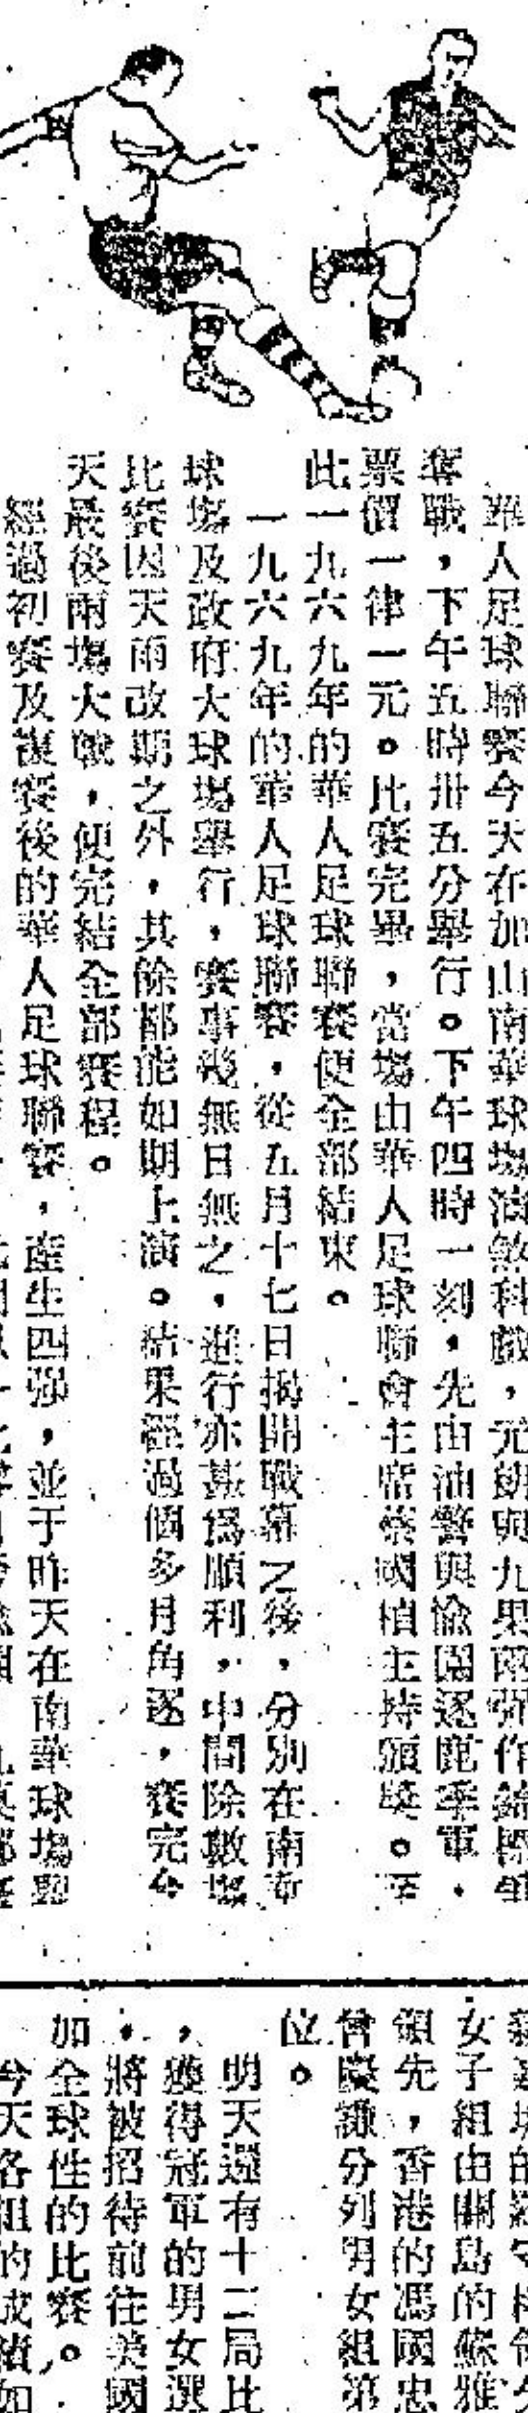 華人足球聯賽今天在加山南華球塲演煞科戲，元朗與九巢兩強作錦標爭
奪戰，下午五時卅五分舉行。下午四時一刻，先由油警與愉園逐鹿季軍，
票價一律一元。比賽完畢，當場由華人足球聯會主席蔡國楨主持頒獎。至
此一九六九年的華人足球聯賽便全部結束。
一九六九年的華人足球聯賽，從五月十七日揭開戰幕之後，分別在南華
球塲及政府大球塲舉行，賽事幾無日無之，進行亦甚爲順利，中間除數塲
比賽因天雨改期之外，其餘都能如期上演。結果經過個多月角逐，賽完今
天最後兩塲大戰，便完結全部賽程。
經過初賽及複賽後的華人足球聯賽，產生四強，並于昨天在南華球塲
女子組由關島的蘇雅
領先，香港的馮國忠
曾慶謙分列男女組第
位。
明天還有十二局比
，獲得冠軍的男女選
，將被招待前往美國
加全球性的比賽。
今天各組的成績如